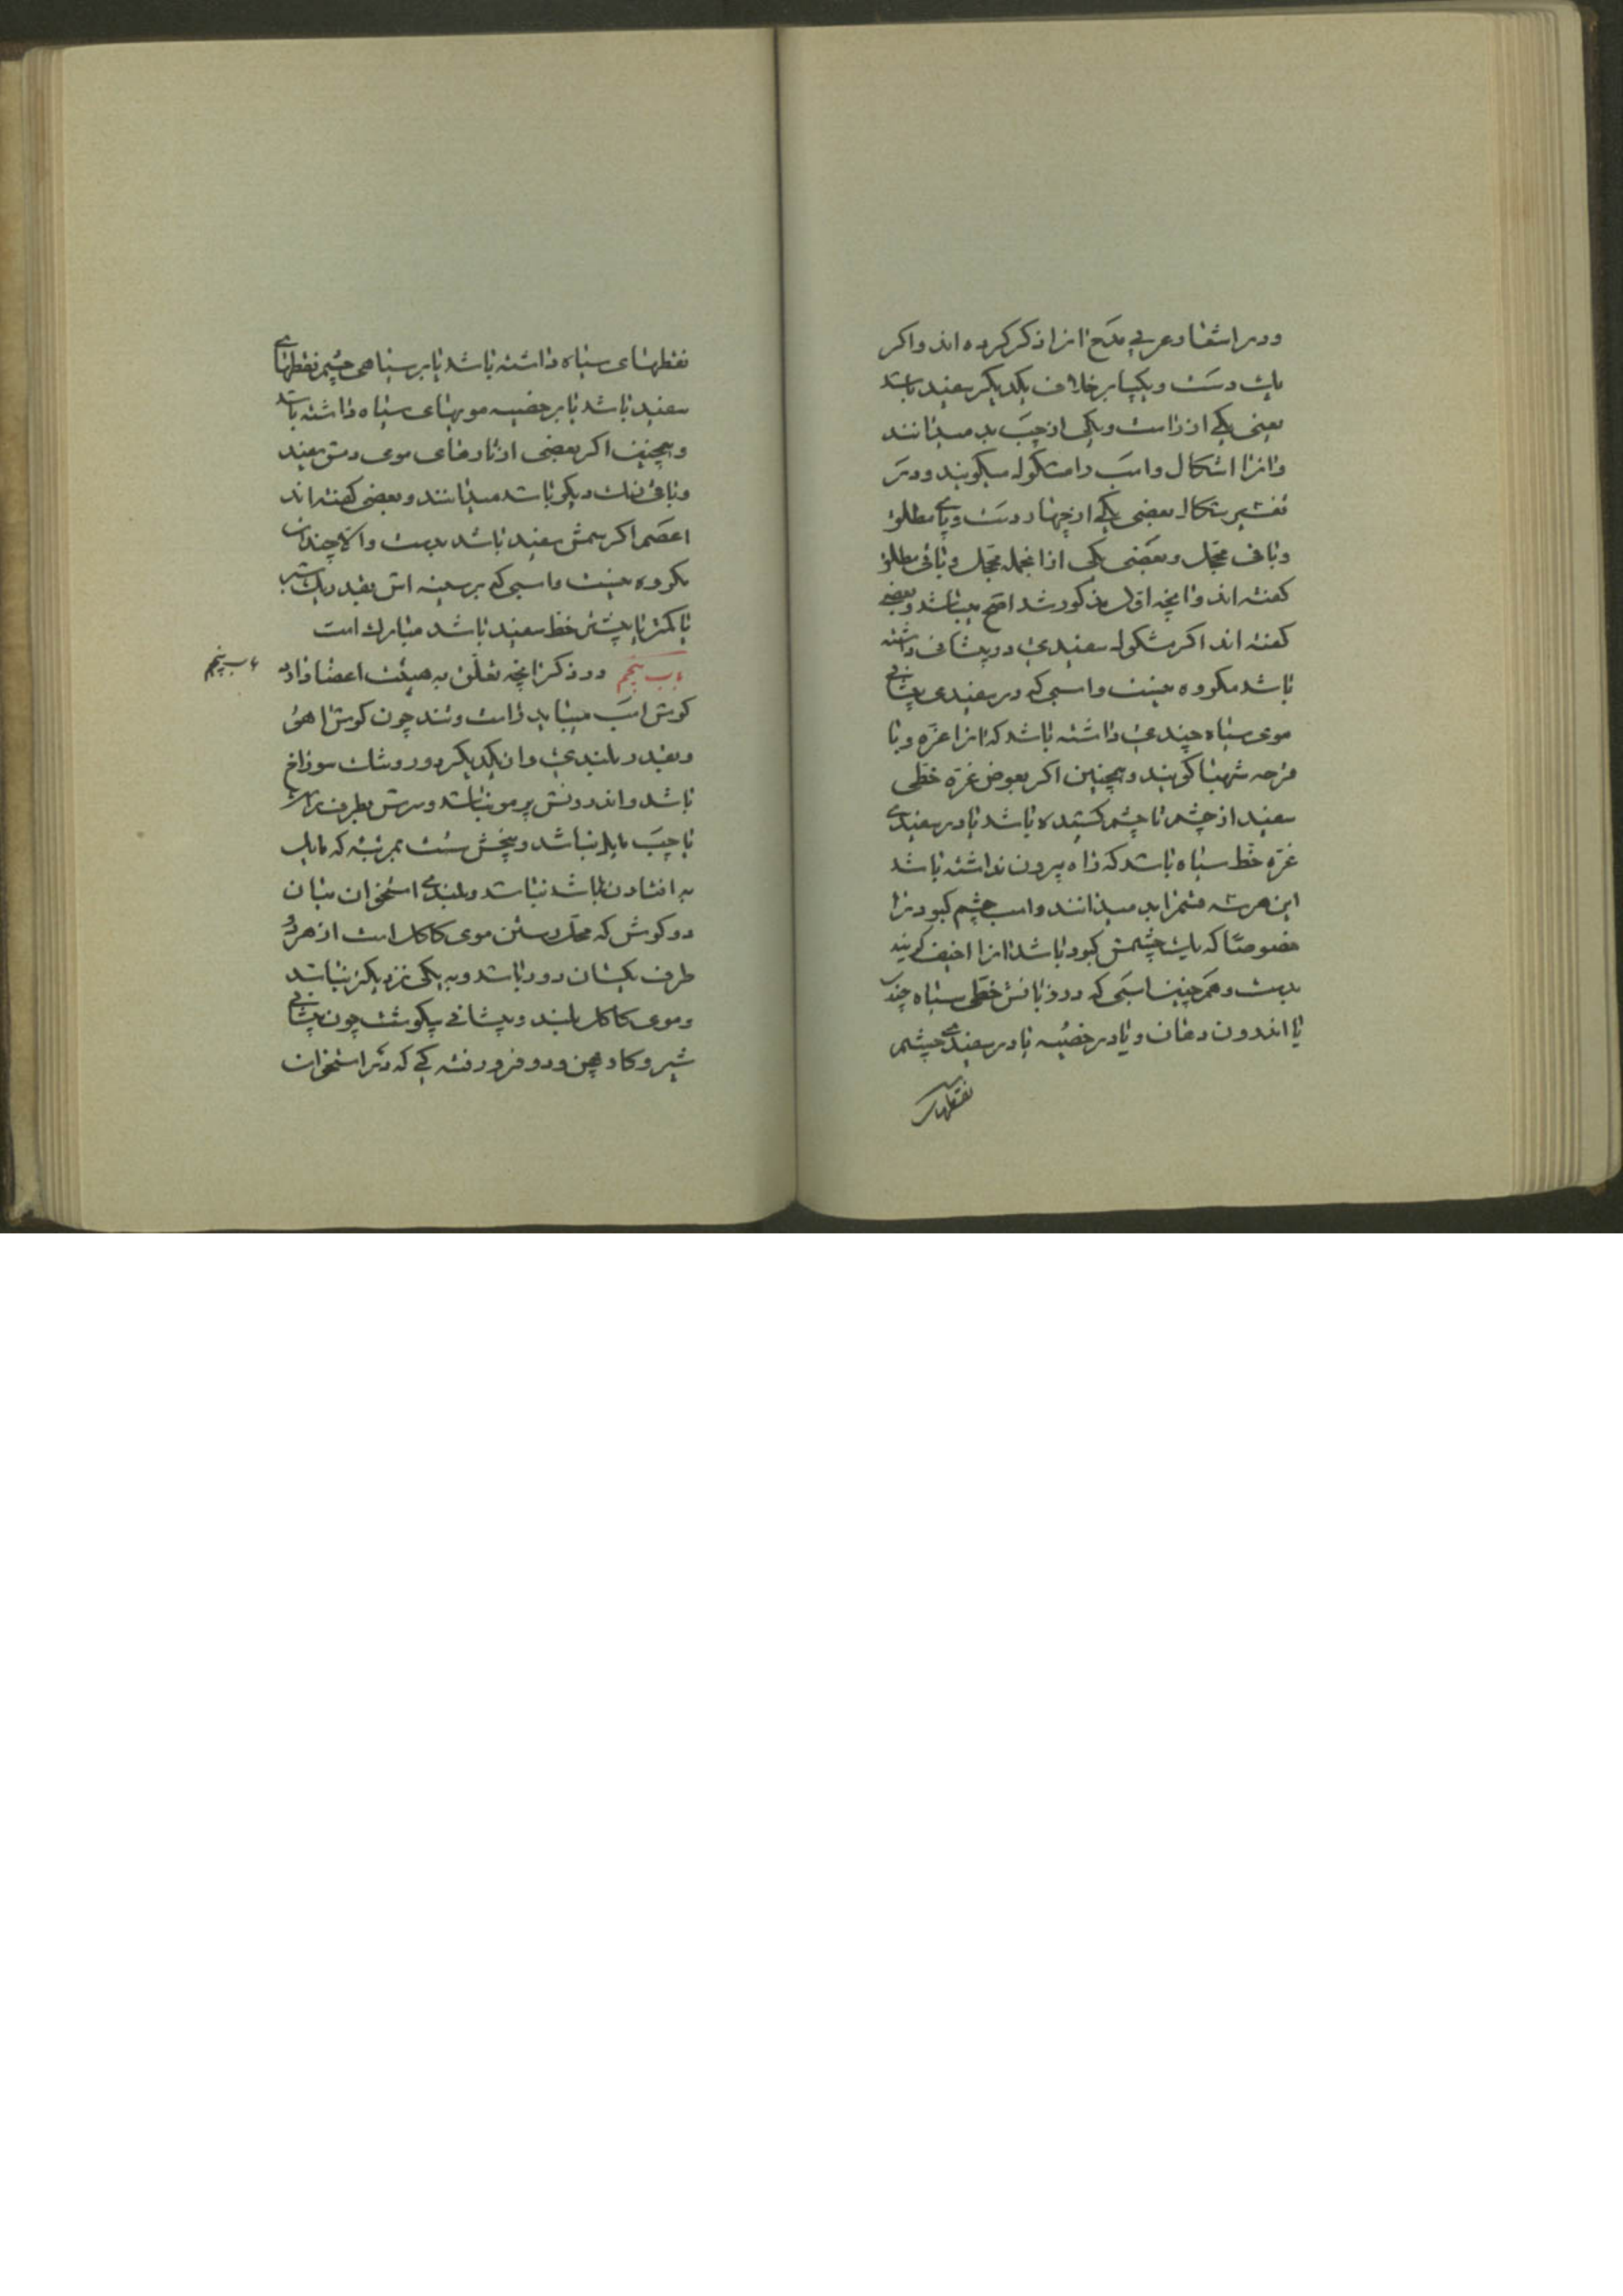 ودر اشعار عربی مدح انرا ذکر کرده اند واکر
یك دست ویکپا بر خلاف یکدیکر سفید باشد
یعنی یکی از راست ویکی از چپ بد میدانند
وانرا اشکال واسب را مشکول میکویند ودر
تفسیر شکال بعضی یکی از چهار دست وپای مطلق
وباقی محجل وبعضی یکی ازانجمله محجل وباقی مطلق
کفته اند وانچه اول مذکور شد اصح میباشد وبعضی
کفته اند اکر مشکول سفیدی در پیشانی داشته
باشد مکروه نیست واسبی که در سفیدی پیشانی
موی سیاه چندی داشته باشد که انرا غره وبا
قرحه شهبا کویند وهمچنین اکر بعوض غره خطی
سفید از چشم تا چشم کشیده باشد یا در سفیدی
غره خط سیاه باشد که راه بیرون نداشته باشد
این هر سه قسم را بد میدانند واسب چشم کبود را
خصوصا که یك چشمش کبود باشد انرا اخیف کویند
بدست وهمچنین اسبی که در زبانش خطی سیاه چند
یا اندرون دهان ویا در خصیه یا در سفیدی چشم
نقطهای
نقطهای سیاه داشته باشد یا بر سیاهی چشم نقطهای
سفید باشد یا بر خصیه مویهای سیاه داشته باشد
وهمچنین اکر بعضی از تارهای موی دمش سفید
وباقی رنك دیکر باشد میدانند وبعضی کفته اند
اعصم اکر سمش سفید باشد بدست والا چندان
مکروه نیست واسبی که بر سینه اش بقدر یك شبر
یا کمتر یا بیشتر خط سفید باشد مبارك است
باب پنجم در ذکر انچه تعلق به هیئت اعضا دارد
باب پنجم
کوش اسب میباید راست وتند چون کوش اهو
وبقدر بلندی وان یکدیکر دور وتنك سوراخ
باشد واندرونش پر مو نباشد وسرش بطرف راست
یا چپ مایل نباشد وبیخش سست بمرتبه که مایل
به افتادن باشد نباشد وبلندی استخوان میان
دو کوش که محل رستن موی کاکل است از هر دو
طرف یکسان دور باشد وبه یکی نزدیکتر نباشد
وموی کاکل بلند وپیشانی پرکوشت چون پیشانی
شیر وکاو پهن ودو فرورفته کی که در استخوان